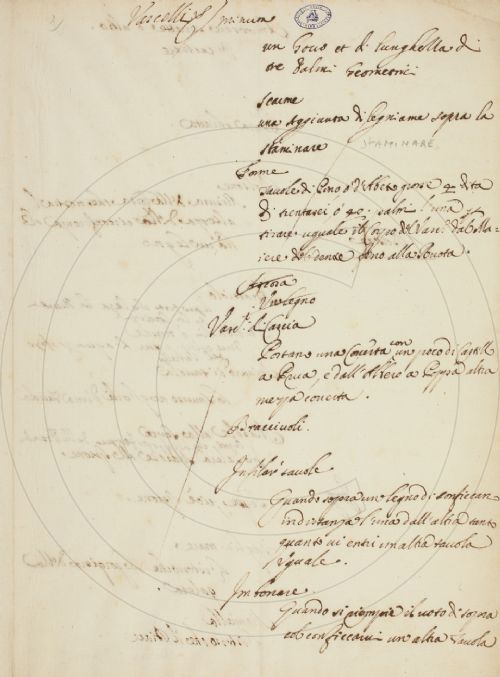 Vascelli
un
et di lunghella di
tre Palmi Geometrici
Seaume
una aggiunta di legniame sopra la
staminare STAMINARE
Forme
Tavole di Pino ò d'Abeto grosse 4 dita
di trentasei ò 40: palmi l'una
tirare uguale il Corpo del
fino alla Ruota.
Ancora
Un legno
di Caccia
Portano una Coverta con un poco di Castell
a Prua, e dall'Albero a Poppa altra
meza coverta.
Braccivoli.
Infilar tavole
Quando sopra un legno si conficcan
in distanza l'una dall'altra tanto
quanto vi entri un altra tavola
Uguale.
Imbonare
Quando si riempie il voto di sopra
col conficcarvi un'altra Tavola